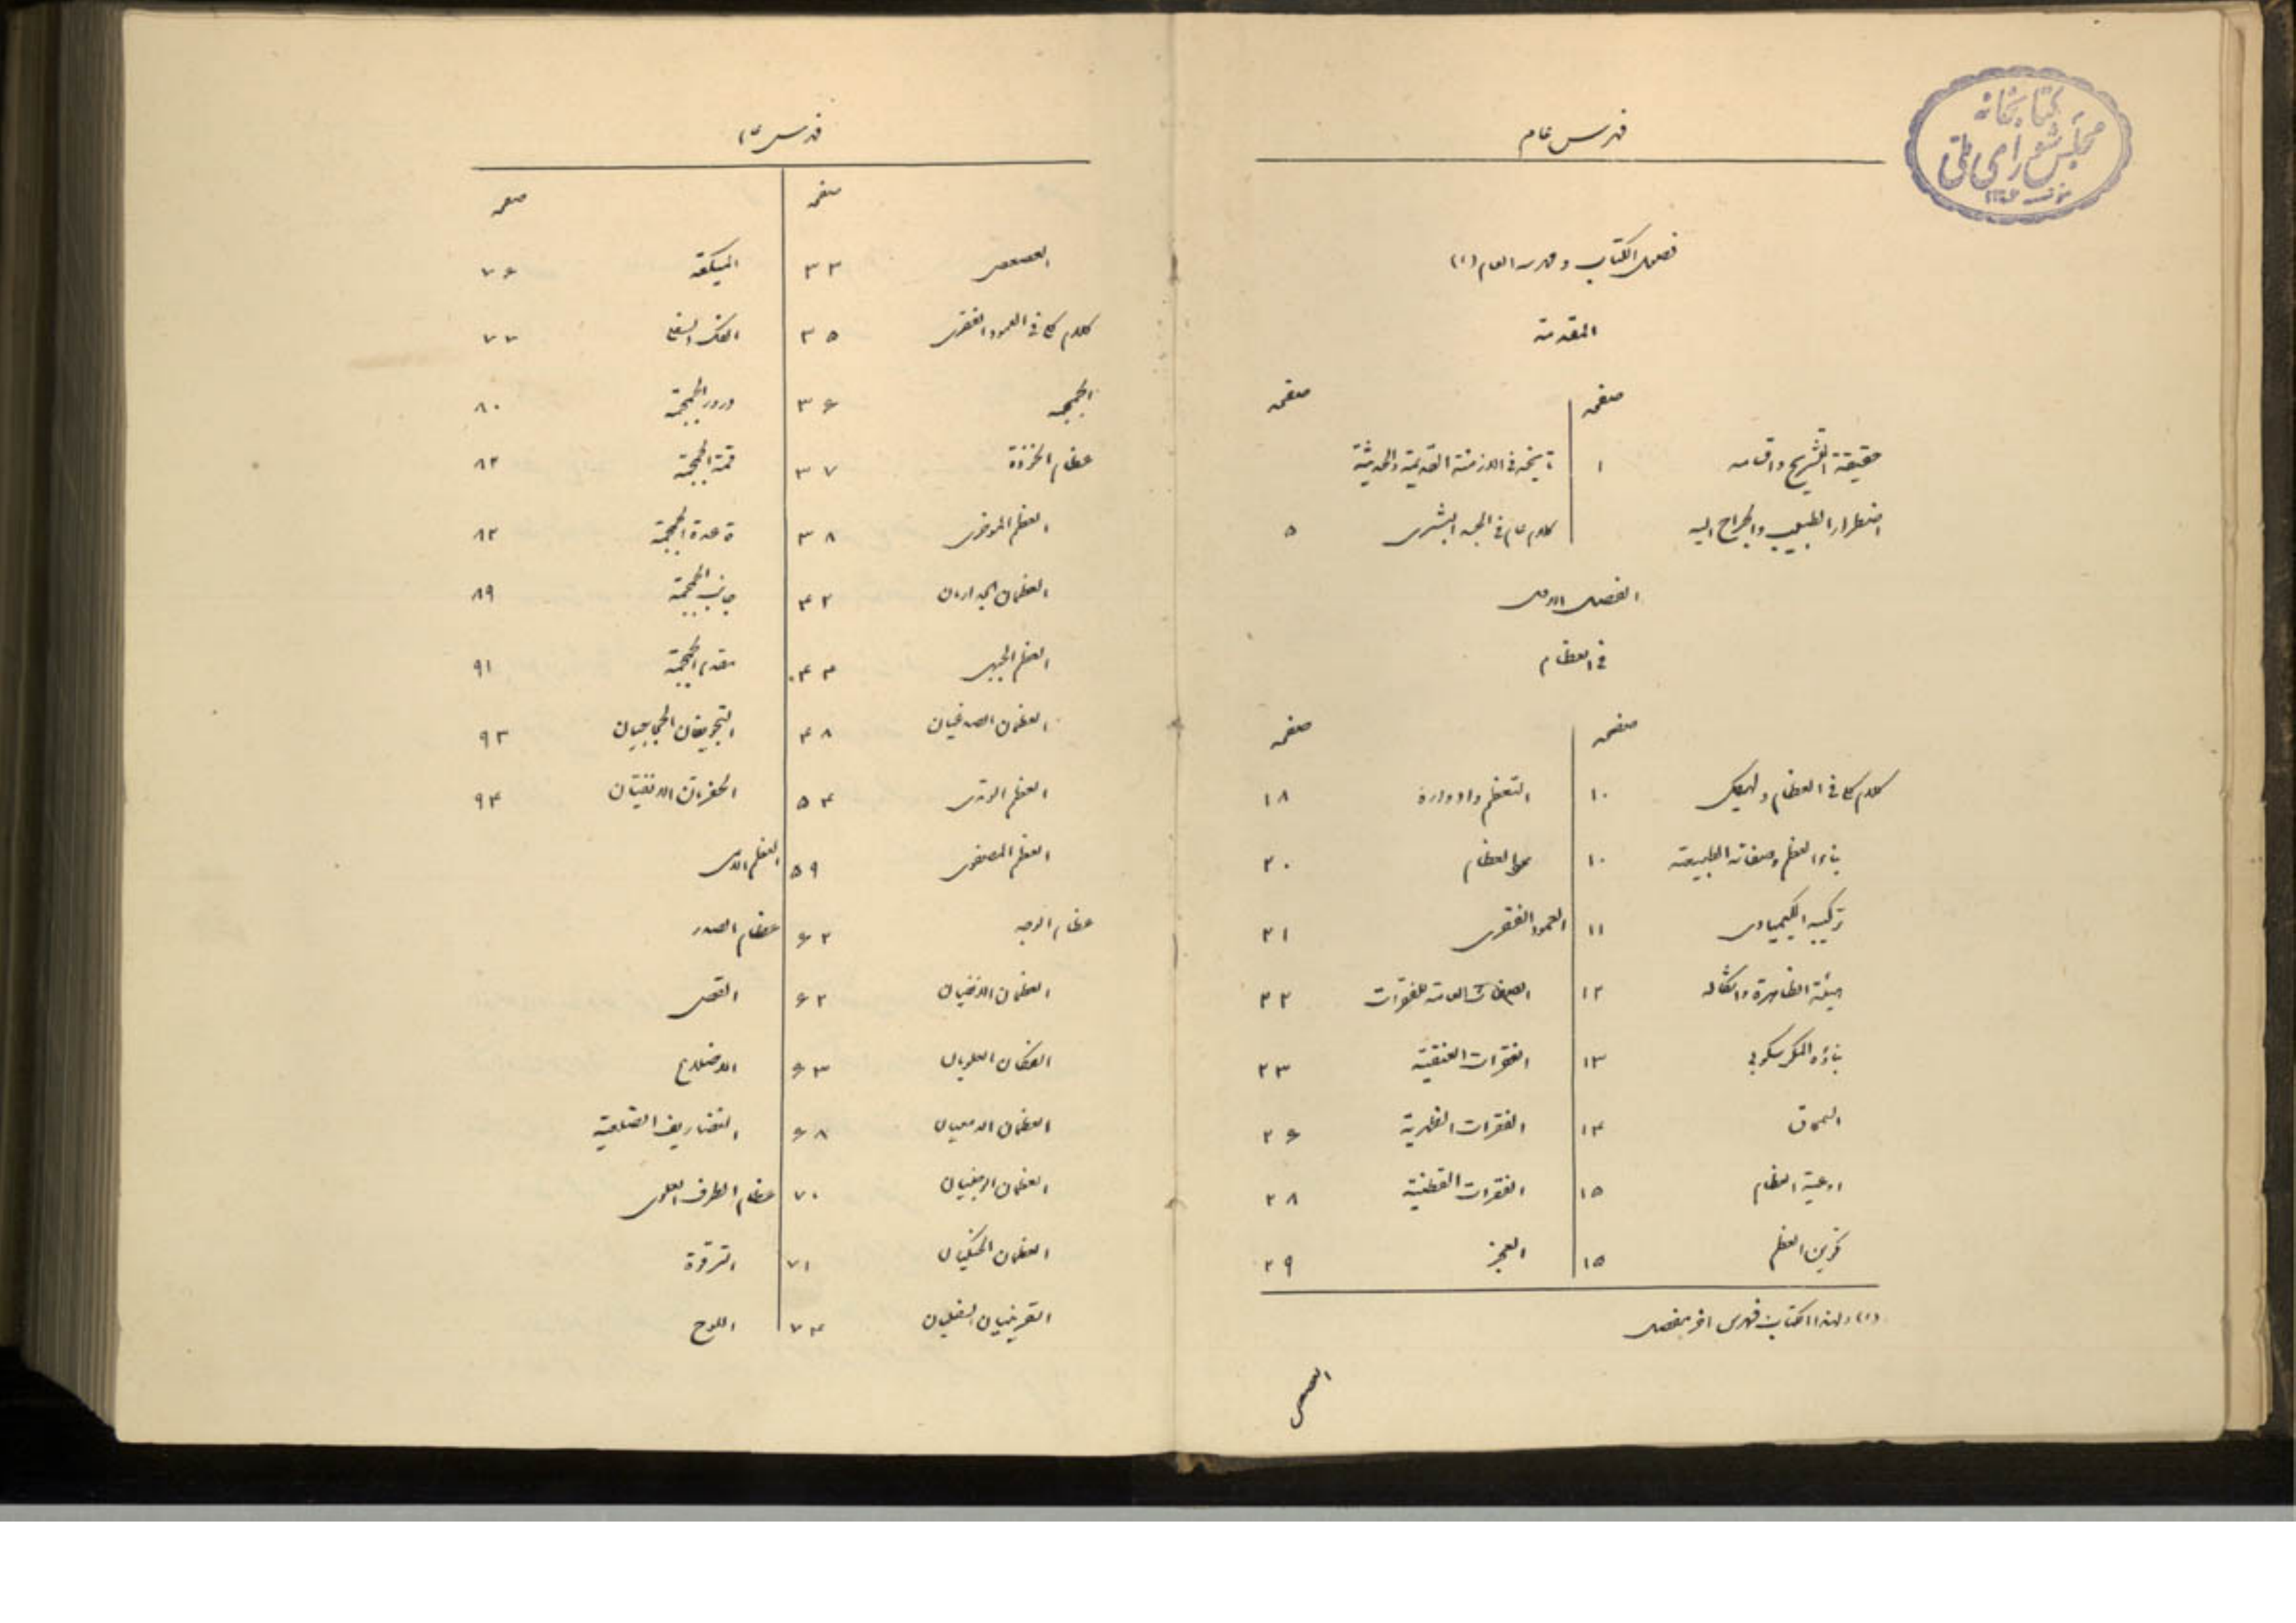 کتابخانه
مجلس شورای ملی
فهرس عام
فصول الكتاب وفهرسه العام (۱)
المقدمة
صفحه صفحه
حقيقة التشريح واقسامه ۱ تاريخه فى الازمنة القديمة والحديثة
اضطرار الطبيب والجراح اليه كلام عام فى الجسد البشرى ۵
الفصل الاول
فى العظام
صفحه صفحه
كلام كلى فى العظام والهيكل ۱۰ التعظم وادواره ۱۸
بناء العظم وصفاته الطبيعية ۱۰ نمو العظام ۲۰
تركيبه الكيمياوى ۱۱ العمود الفقرى ۲۱
هيئته الظاهرة واشكاله ۱۲ الصفات العامة للفقرات ۲۲
بناؤه المكرسكوبى ۱۳ الفقرات العنقية ۲۳
السمحاق ۱۴ الفقرات الظهرية ۲۶
اوعية العظام ۱۵ الفقرات القطنية ۲۸
تكوين العظم ۱۵ العجز ۲۹
(۱) ولهذا الكتاب فهرس اخر مفصل
العصعص
فهرس عام
صفحه صفحه
العصعص ۳۳ الميكعة ۷۶
كلام كلى فى العمود الفقرى ۳۵ الفك السفلى ۷۷
الجمجمه ۳۶ دروز الجمجمة ۸۰
عظام الخوذة ۳۷ قمة الجمجمة ۸۲
العظم الموخرى ۳۸ قاعدة الجمجمة ۸۲
العظمان الجداريان ۴۲ جانب الجمجمة ۸۹
العظم الجبهى ۴۴ مقدم الجمجمة ۹۱
العظمان الصدغيان ۴۸ التجويفان الحجاجيان ۹۳
العظم الوتدى ۵۴ الحفرتان الانفيتان ۹۴
العظم المصفوى ۵۹ العظم اللامى
عظام الوجه ۶۲ عظام الصدر
العظمان الانفيان ۶۲ القص
الفكان العلويان ۶۳ الاضلاع
العظمان الدمعيان ۶۸ الغضاريف الضلعية
العظمان الوجنيان ۷۰ عظام الطرف العلوى
العظمان الحنكيان ۷۱ الترقوة
القرينيان السفليان ۷۴ اللوح